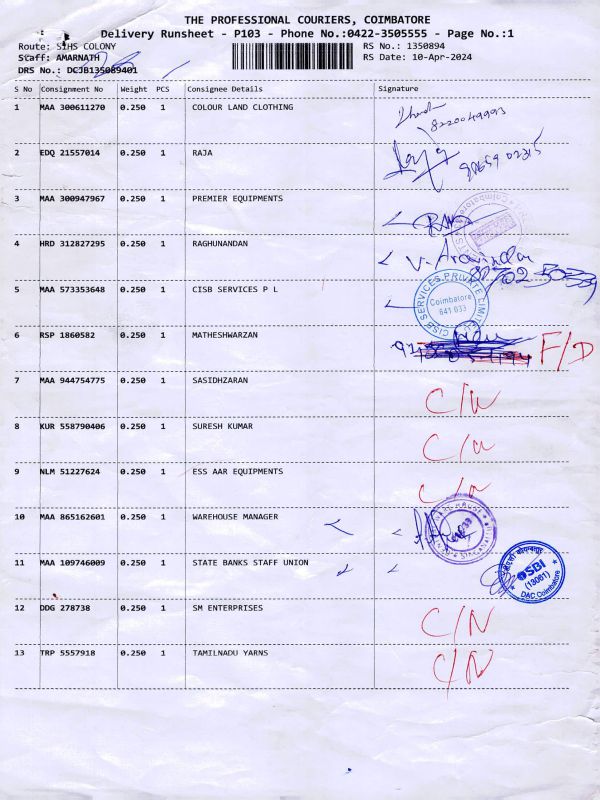 THE PROFESSIONAL COURIERS, COIMBATORE
Delivery Runsheet - P103 - Phone No.:0422-3505555 - Page No.:1
Route: SIHS COLONY RS No.: 1350894
Staff: AMARNATH RS Date: 10-Apr-2024
DRS No.: DCJB135089401
S No Consignment No Weight PCS Consignee Details Signature
1 MAA 300611270 0.250 1 COLOUR LAND CLOTHING
8220049993
2 EDQ 21557014 0.250 1 RAJA
3 MAA 300947967 0.250 1 PREMIER EQUIPMENTS
4 HRD 312827295 0.250 1 RAGHUNANDAN
V. Aravindan
5 MAA 573353648 0.250 1 CISB SERVICES P L
CISB SERVICES PRIVATE LIMITED
Coimbatore
641 033
6 RSP 1860582 0.250 1 MATHESHWARZAN F/D
7 MAA 944754775 0.250 1 SASIDHZARAN C/N
8 KUR 558790406 0.250 1 SURESH KUMAR C/N
9 NLM 51227624 0.250 1 ESS AAR EQUIPMENTS C/N
10 MAA 865162601 0.250 1 WAREHOUSE MANAGER
11 MAA 109746009 0.250 1 STATE BANKS STAFF UNION
SBI
(13061)
DAC Coimbatore
12 DDG 278738 0.250 1 SM ENTERPRISES C/N
13 TRP 5557918 0.250 1 TAMILNADU YARNS C/N